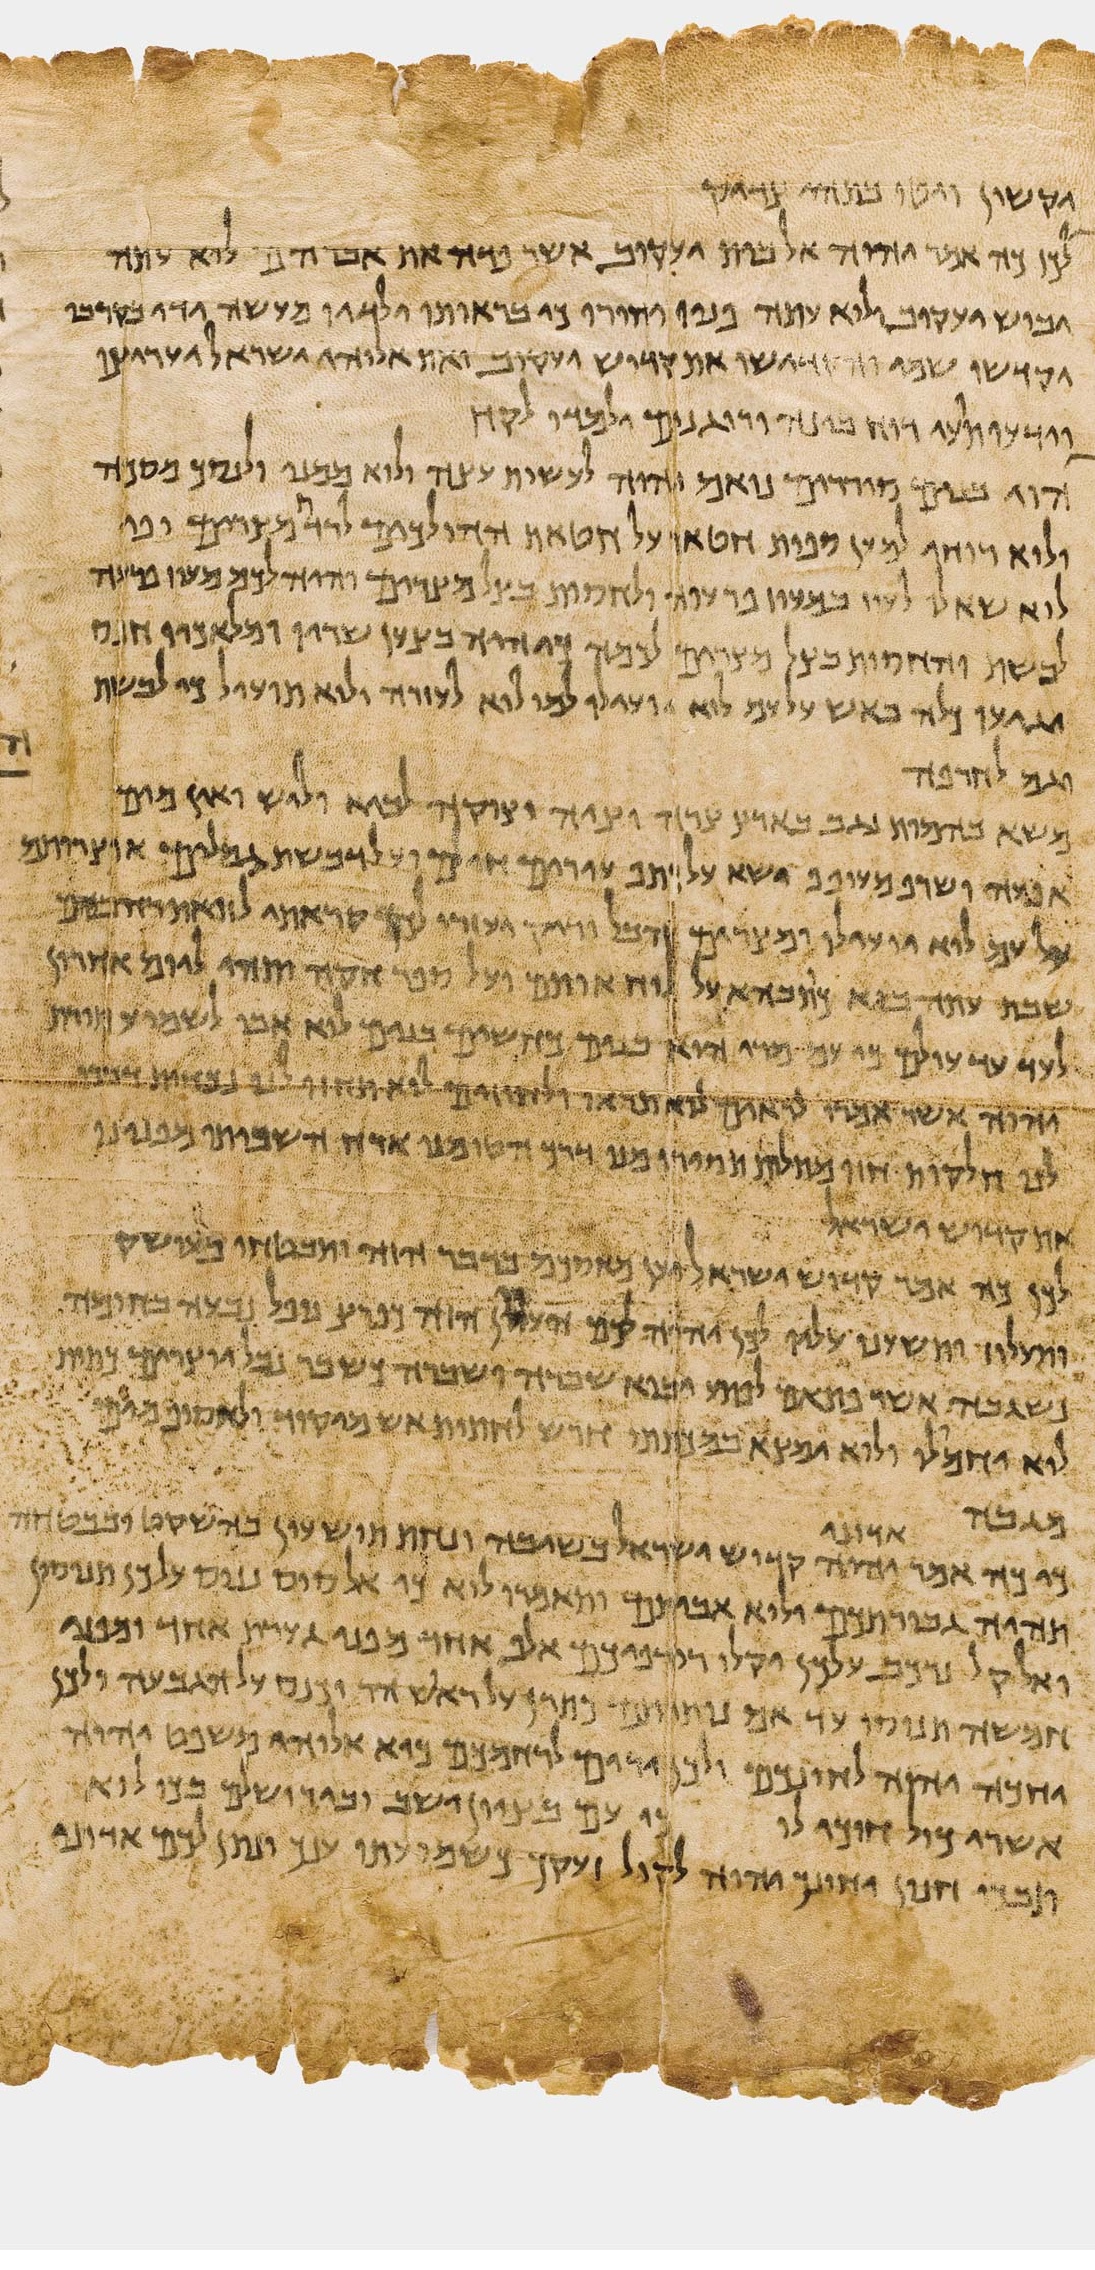 יקשון ויטו בתהו צדיק
לכן כה אמר יהוה אל בית יעקוב אשר פדה את אברהם לוא עתה
יבוש יעקוב ולוא עתה פניו יחורו כי בראותו ילדיו מעשה ידי בקרבו
יקדשו שמי והקדישו את קדוש יעקוב ואת אלוהי ישראל יעריצו
וידעו תועי רוח בינה ורוגנים ילמדו לקח
הוי בנים סוררים נואם יהוה לעשות עצה ולוא ממני ולנסך מסכה
ולוא רוחי למען ספות חטאת על חטאת ההולכים לרדת מצרים ופי
לוא שאלו לעוז במעוז פרעוה ולחסות בצל מצרים והיה לכם מעוז פרעה
לבשת והחסות בצל מצרים לכלמה כי היה בצען שריו ומלאכיו חנס
יגיעו כלה באש על עם לוא יועילו למו לוא לעזרה ולוא תועיל כי לבשת
וגם לחרפה
משא בהמות נגב בארץ צרה וציה וצוקה לביא וליש ואין מים
אפעה ושרף מעופף ישא על כתף עורים חילם ועל דבשת גמלים אוצרותם
על עם לוא יועילו ומצרים הבל וריק יעזורו לכן קראתי לזואת
שבת עתה בוא על לוח אותם ועל ספר ותהי ליום אחרון
לעד עד עולם כי עם מרי הוא בנים כחשים בנים לוא אבו לשמוע תורת
יהוה אשר אמרו לוא תראו ולחוזים לוא תחזו לנו נכוחות דברו
לנו חלקות חזו תסירו מני דרך הטו מני אורח השביתו מפנינו
את קדוש ישראל
לכן כה אמר קדוש ישראל יען מאסכם בדבר הזה ותבטחו בעושק
ותעלוז ותשענו עליו לכן יהיה לכם העוון הזה כפרץ נופל נבעה בחומה
נשגבה אשר פתאם לפתע יבוא שברה ושברה כשבר נבל יוצרים כתות
לוא יחמולו ולוא ימצא במכתתו חרש לחתות אש מיקוד מים
מגבה
אדוני
כי כה אמר יהוה קדוש ישראל בשובה ונחת תושעון בהשקט ובבטחה
תהיה גבורתכם ולוא אביתם ותאמרו לוא כי אל סוס ננוס על כן תנוסון
ואל קל נרכב על כן יקלו רודפיכם אלף אחד מפני גערת אחד ומפני
חמשה תנוסו עד אם נותרתם כתרן על ראש הר וכנס על הגבעה ולכן
יחכה יהוה ולכן ירום לרחמכם כיא אלוהי משפט יהוה
אשרי כול חוכי לו כי עם בציון ישב ובירושלים בכו לוא
תבכו חנון יחונך יהוה לקול זעקך כשמועתו ענך ונתן לכם אדוני